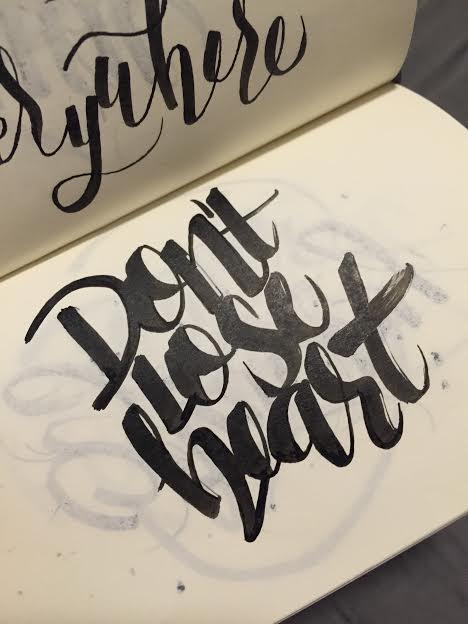 erywhere
Don't
lose
heart